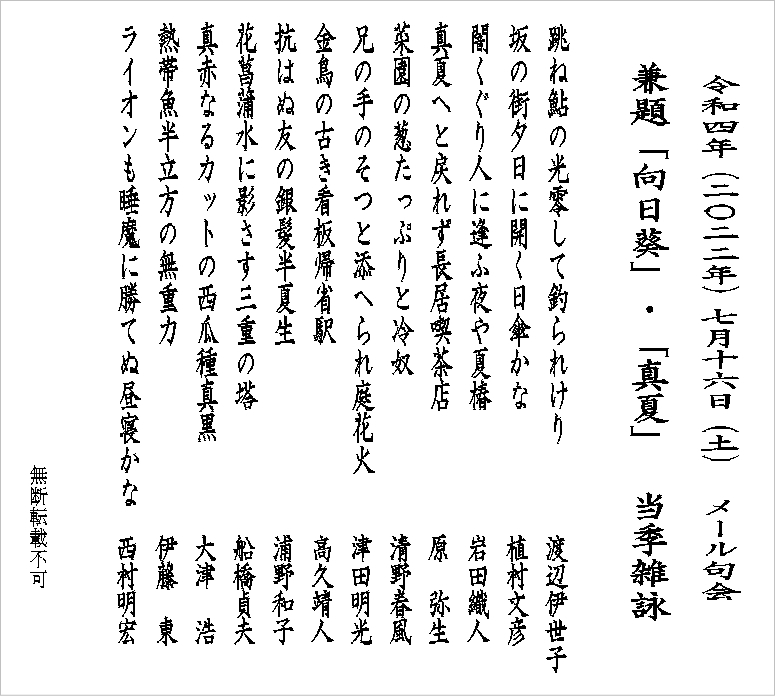 令和四年（二〇二二年）七月十六日（土）　メール句会
兼題「向日葵」・「真夏」　当季雑詠
跳ね鮎の光零して釣られけり　渡辺伊世子
坂の街夕日に開く日傘かな　植村文彦
闇くぐり人に逢ふ夜や夏椿　岩田織人
真夏へと戻れず長居喫茶店　原　弥生
菜園の葱たっぷりと冷奴　清野春風
兄の手のそつと添へられ庭花火　津田明光
金鳥の古き看板帰省駅　高久靖人
抗はぬ友の銀髪半夏生　浦野和子
花菖蒲水に影さす三重の塔　船橋貞夫
真赤なるカットの西瓜種真黒　大津　浩
熱帯魚半立方の無重力　伊藤　東
ライオンも睡魔に勝てぬ昼寝かな　西村明宏
無断転載不可